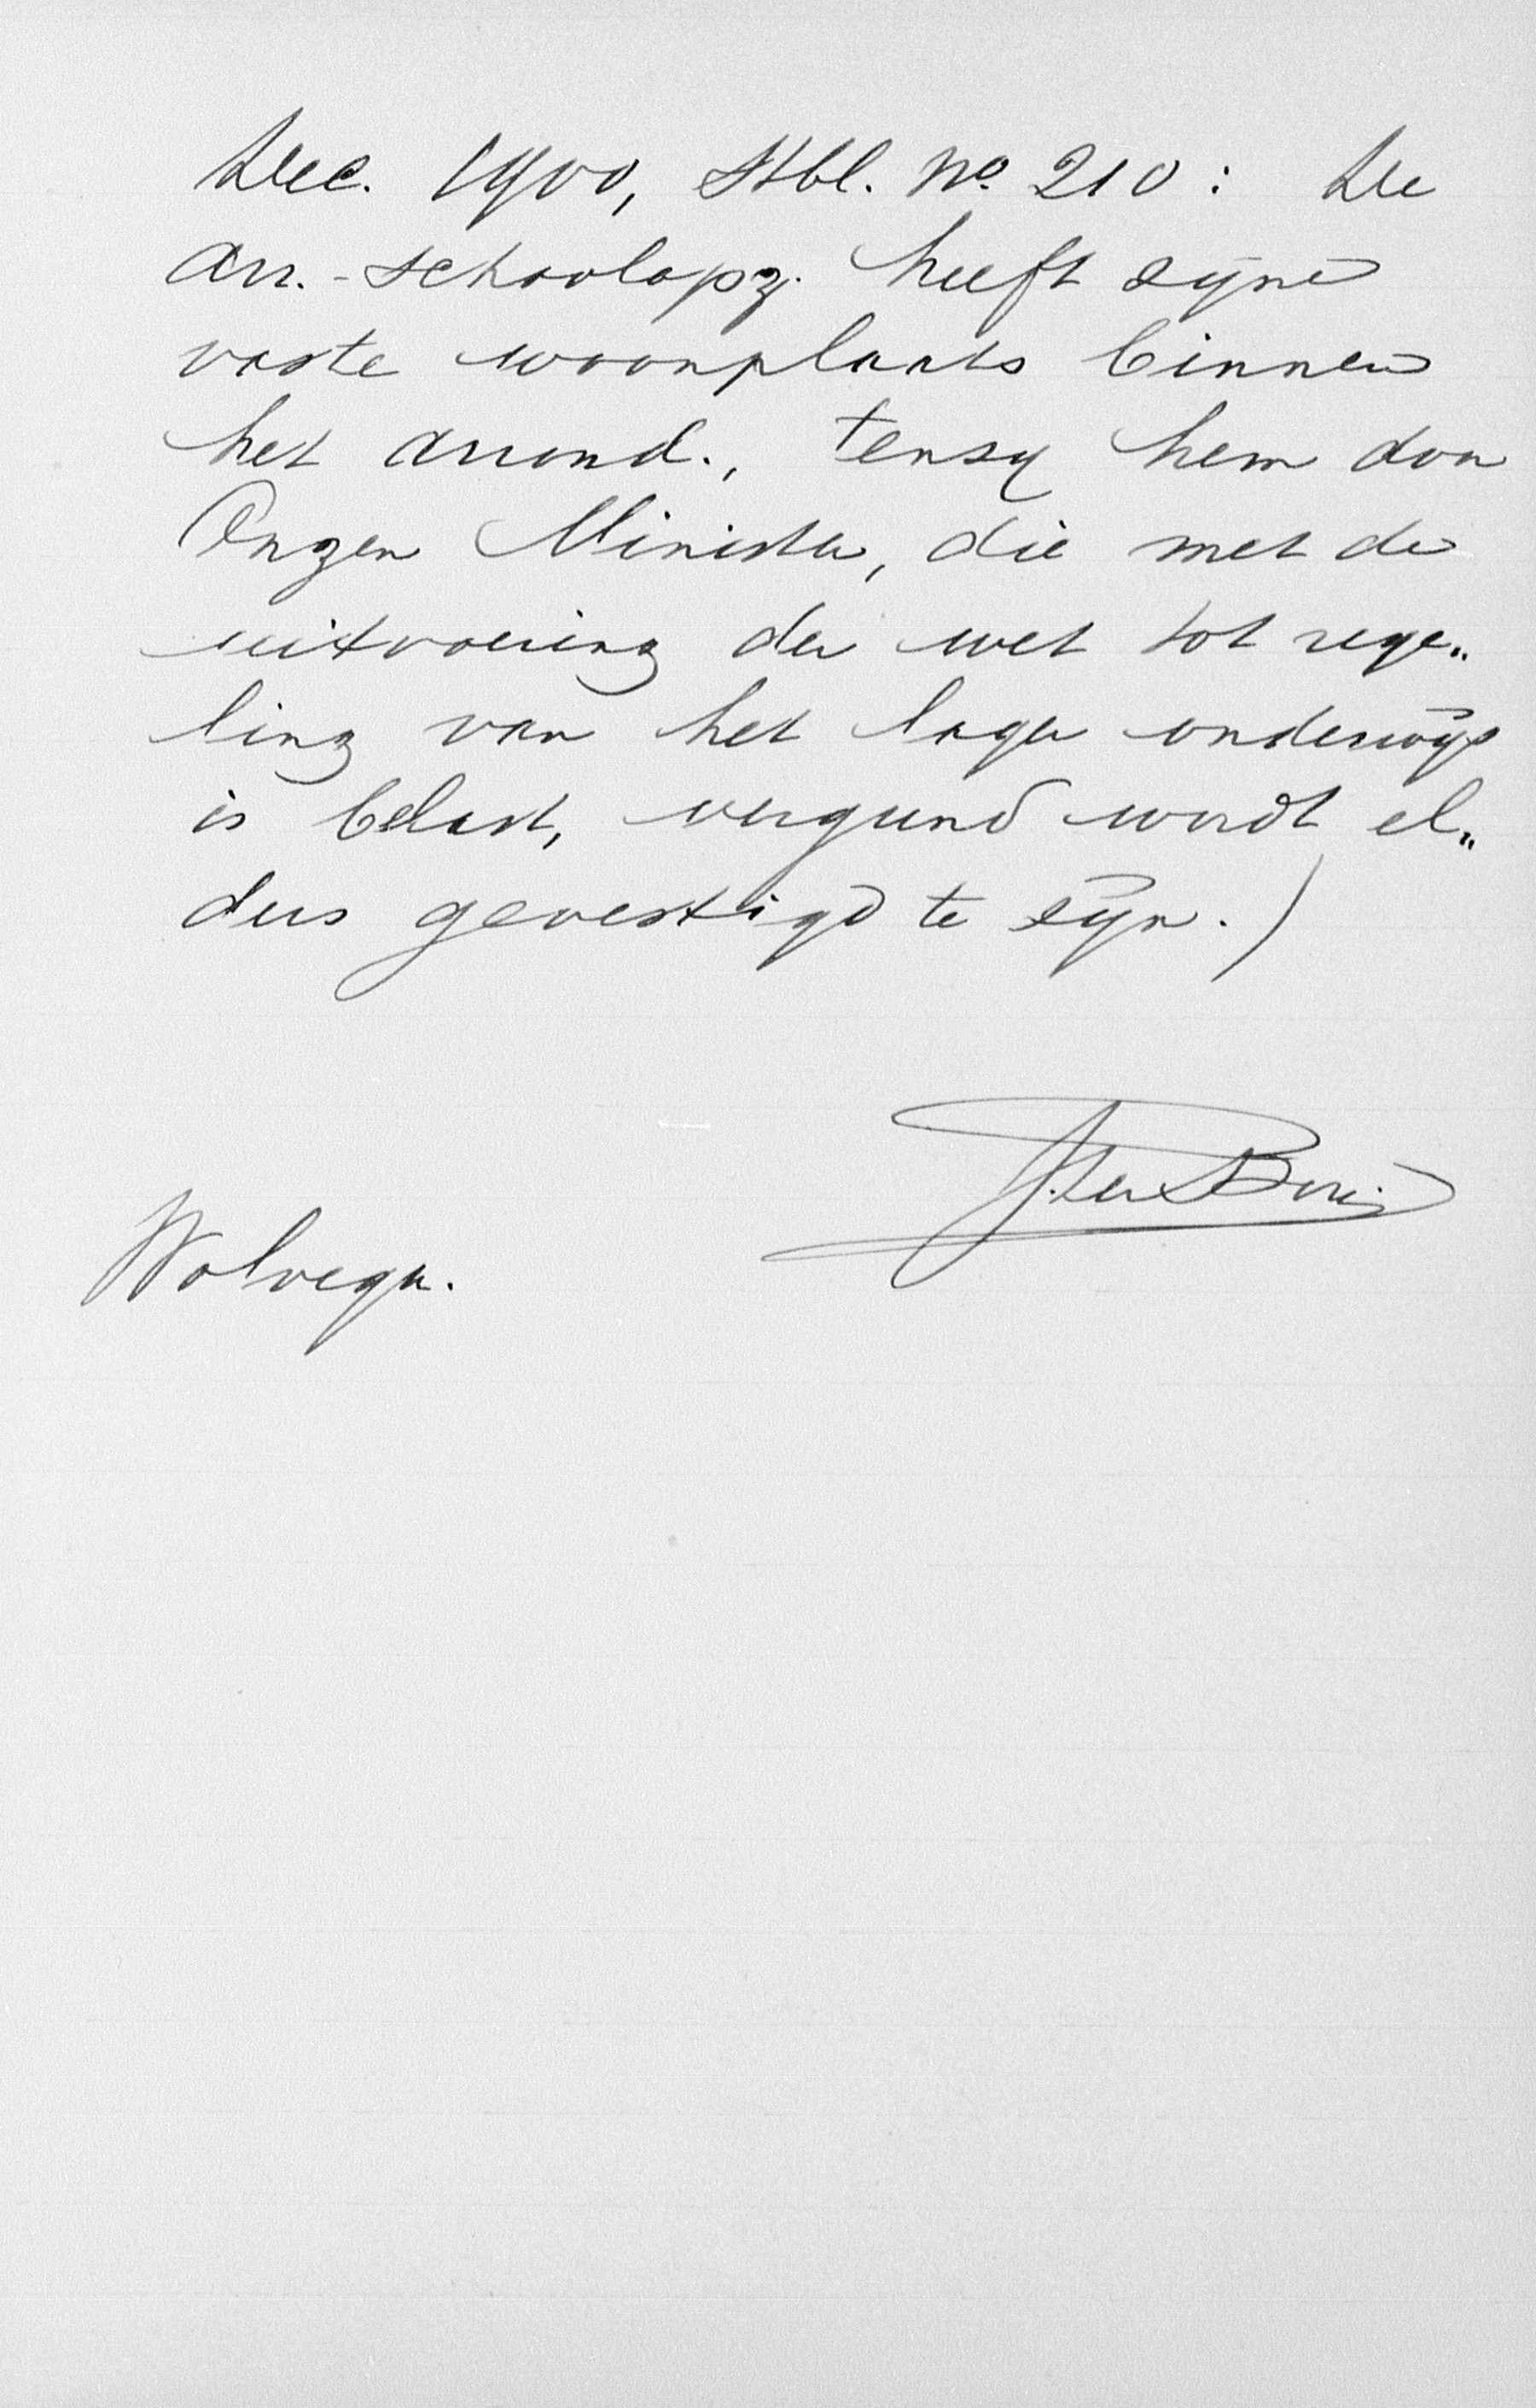 Dec. 1900, Stbl. No. 210: De
arr.-schoolopz. heeft zijne
vaste woonplaats binnen
het arrond., tenzij hem door
Onzen Minister, die met de
uitvoering der wet tot rege„
ling van het lager onderwijs
is belast, vergund wordt el„
ders gevestigd te zijn.)
Wolvega.